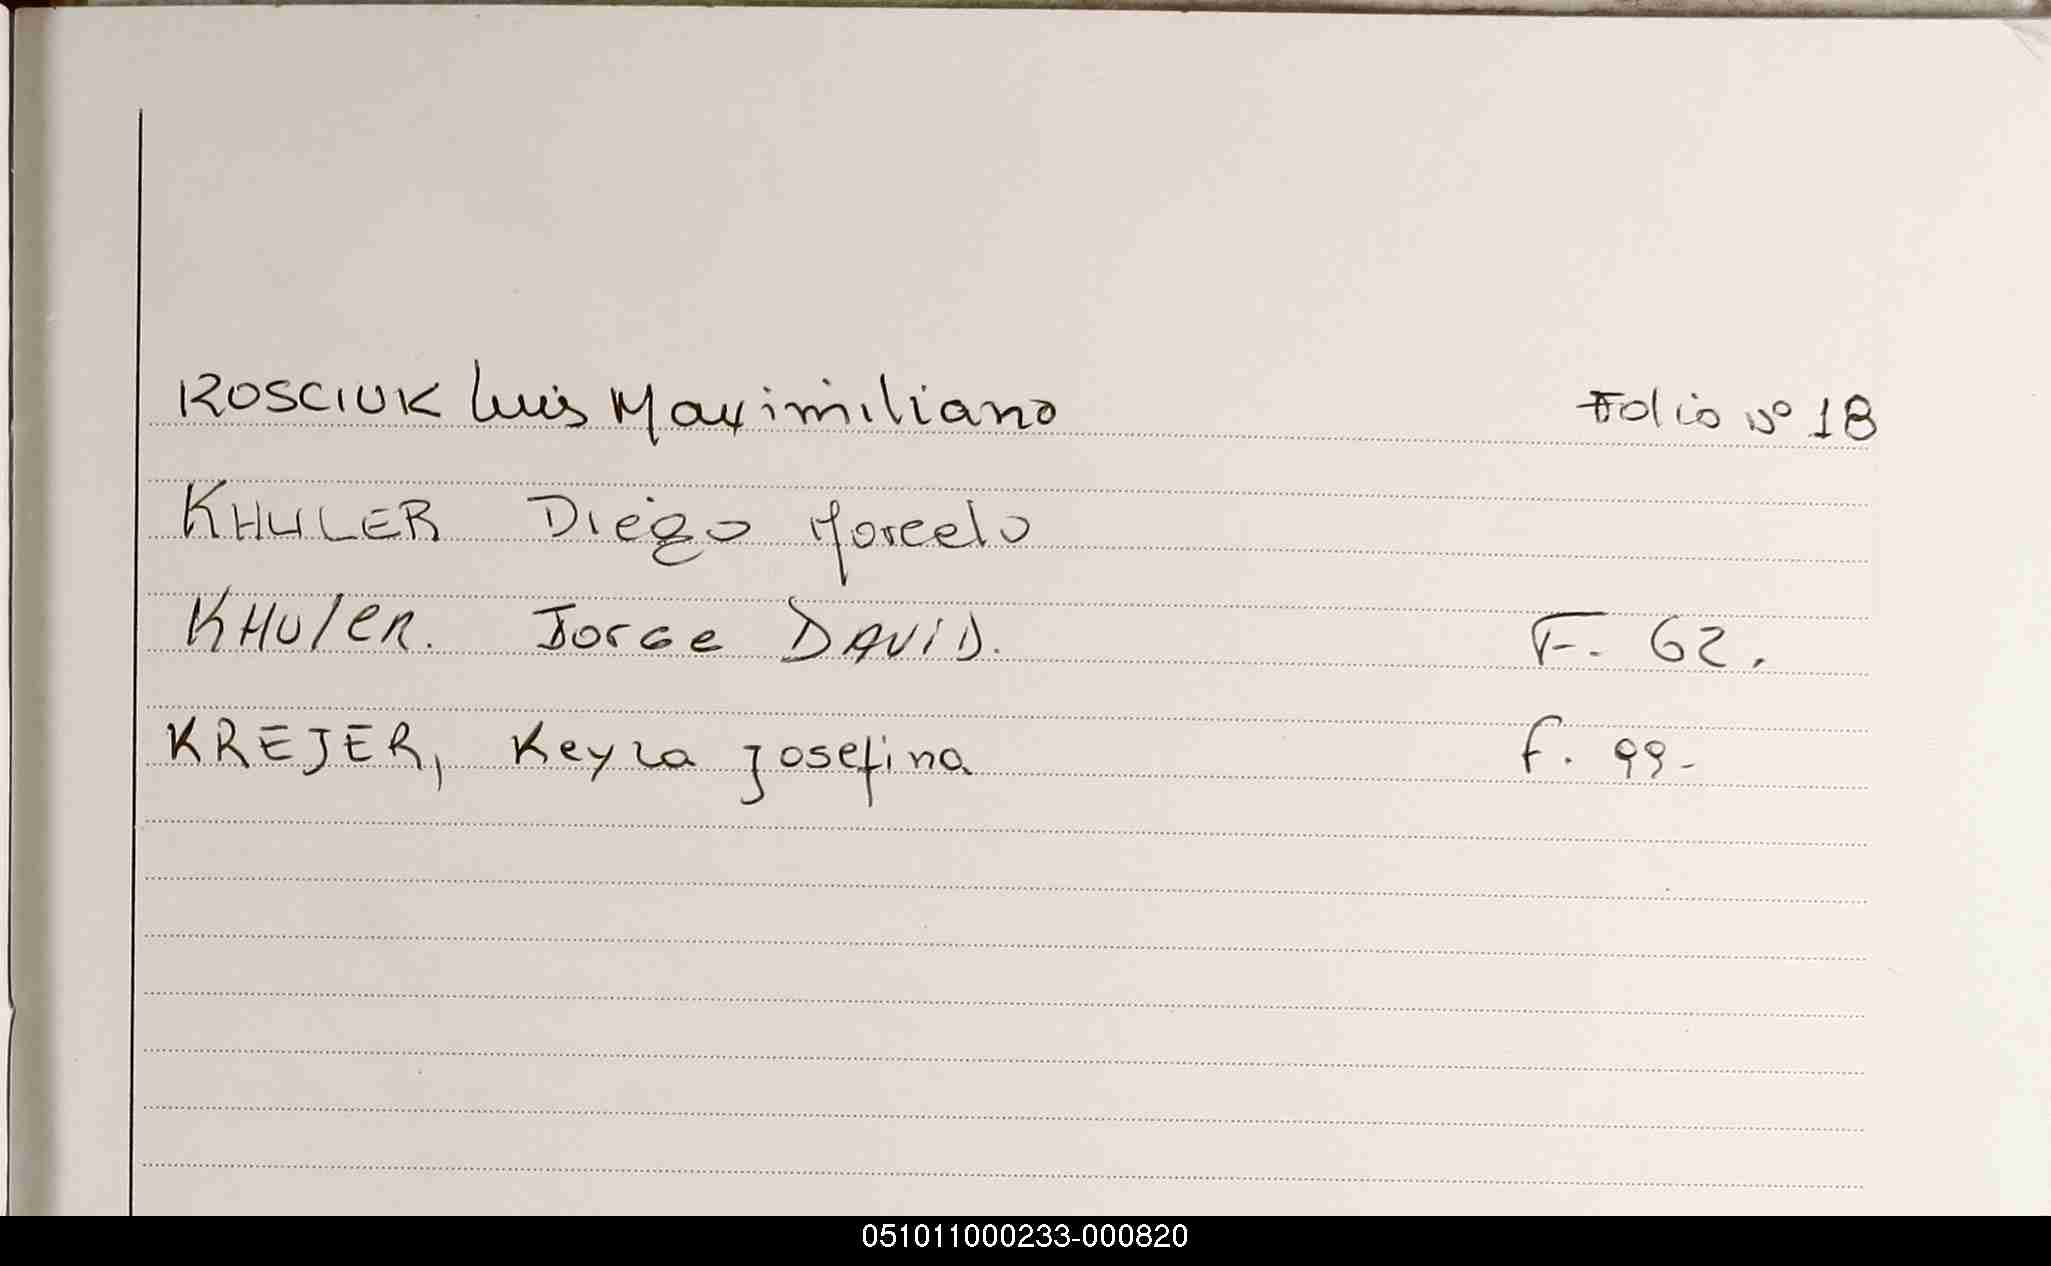 KOSCIUK Luis Maximiliano Folio Nº 18
KHULER Diego Marcelo
KHUleR. JorGe DAVID. F. 62.
KREJER, Keyla Josefina f. 99-
051011000233-000820